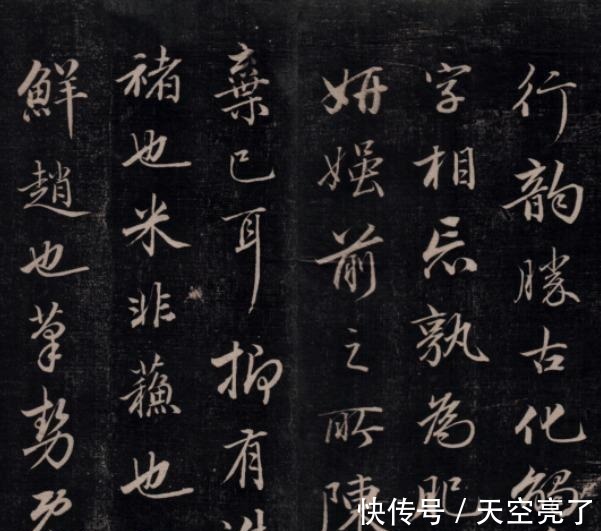 行韵勝古化
字相忘孰為肥
妍媸前之所陳
棄已耳抑有
褚也米非蘇也
鮮趙也筆勢
快传号 / 天空亮了